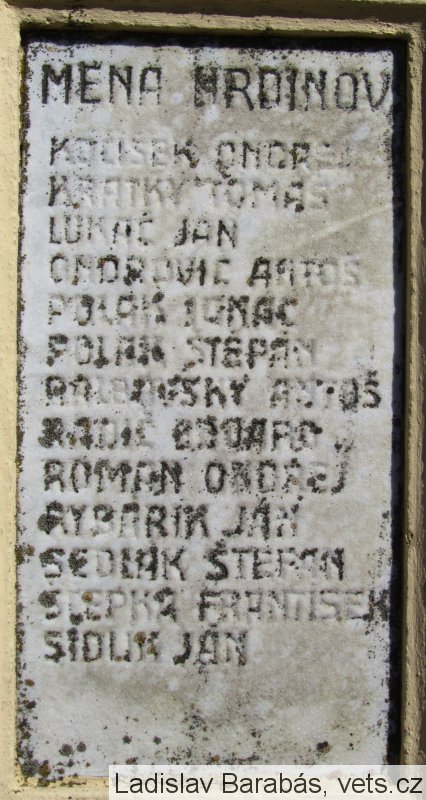 MENA HRDINOV
KOCISEK ONDREJ
KRATKY TOMAS
LUKAČ JAN
ONDROVIC ANTOŠ
POLAK IGNAC
POLAK STEPAN
ANTOŠ
RADIC EDUARD
ROMAN ONDREJ
RYBARIK JÁN
SEDLAK ŠTEPAN
STEPKA FRANTISEK
SIDLIK JÁN
Ladislav Barabás, vets.cz